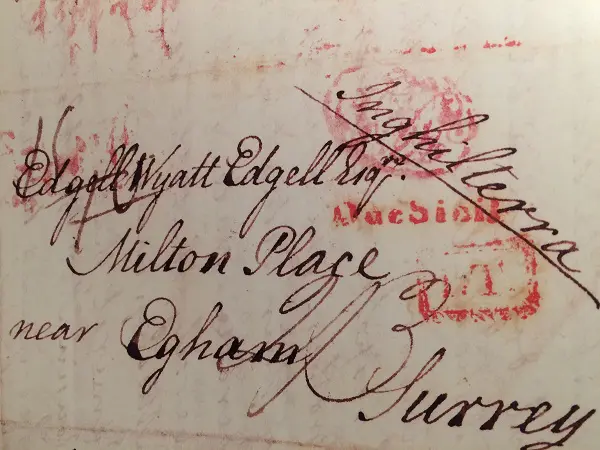 Inghilterra
Edgell Wyatt Edgell Esqr.
Due Sicil
Milton Place
T
near Egham
Surrey